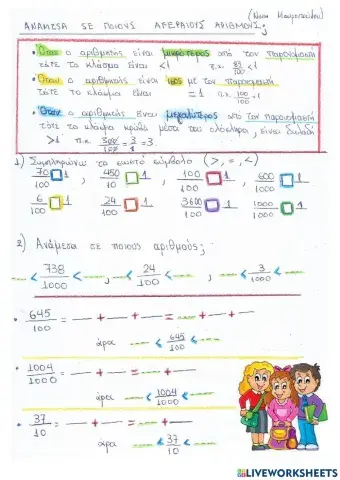 (Νίκη Μαυροπούλου)
ΑΝΑΜΕΣΑ ΣΕ ΠΟΙΟΥΣ ΑΚΕΡΑΙΟΥΣ ΑΡΙΘΜΟΥΣ;
• Όταν ο αριθμητής είναι μικρότερος από τον παρονομαστή
τότε το κλάσμα είναι <1 π.χ. 83/100 <1
• Όταν ο αριθμητής είναι ίσος με τον παρονομαστή
τότε το κλάσμα είναι =1 π.χ. 100/100 =1
• Όταν ο αριθμητής είναι μεγαλύτερος από τον παρονομαστή
τότε το κλάσμα κρύβει μέσα του ολόκληρα, είναι δηλαδή
>1 π.χ. 300/100 = 3/1 = 3.
1) Συμπληρώνω το σωστό σύμβολο (>, =, <)
70/100 □ 1, 450/10 □ 1, 100/100 □ 1, 600/1000 □ 1
6/100 □ 1 24/100 □ 1 3600/100 □ 1 1000/1000 □ 1
2) Ανάμεσα σε ποιους αριθμούς;
--- < 738/1000 < ---, --- < 24/100 < ---, --- < 3/1000 < ---
• 645/100 = --- + --- + --- = --- + --- + ---
άρα --- < 645/100 < ---
• 1004/1000 = --- + --- + --- = --- + --- + ---
άρα --- < 1004/1000 < ---
• 37/10 = --- + --- = --- + ---
άρα --- < 37/10 < ---
LIVEWORKSHEETS